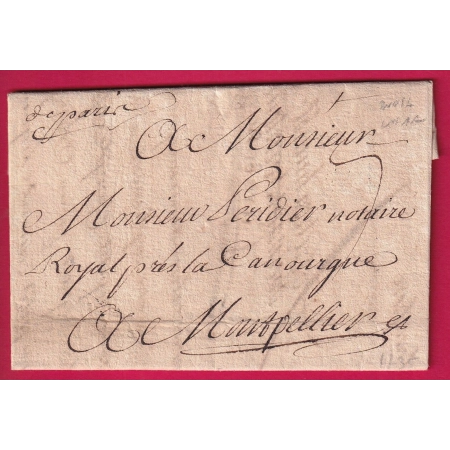 de paris
A Monsieur
Monsieur Peridier notaire
Royal près la Canourgue
A Montpellier